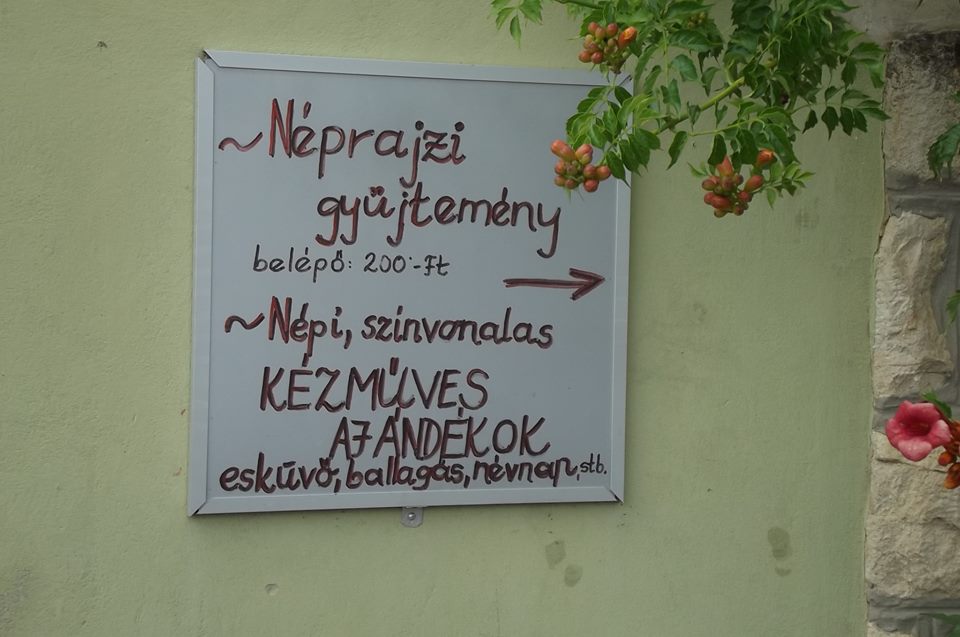 ~Néprajzi
gyűjtemény
belépő: 200.-Ft
~Népi, színvonalas
KÉZMŰVES
AJÁNDÉKOK
esküvő, ballagás, névnap, stb.